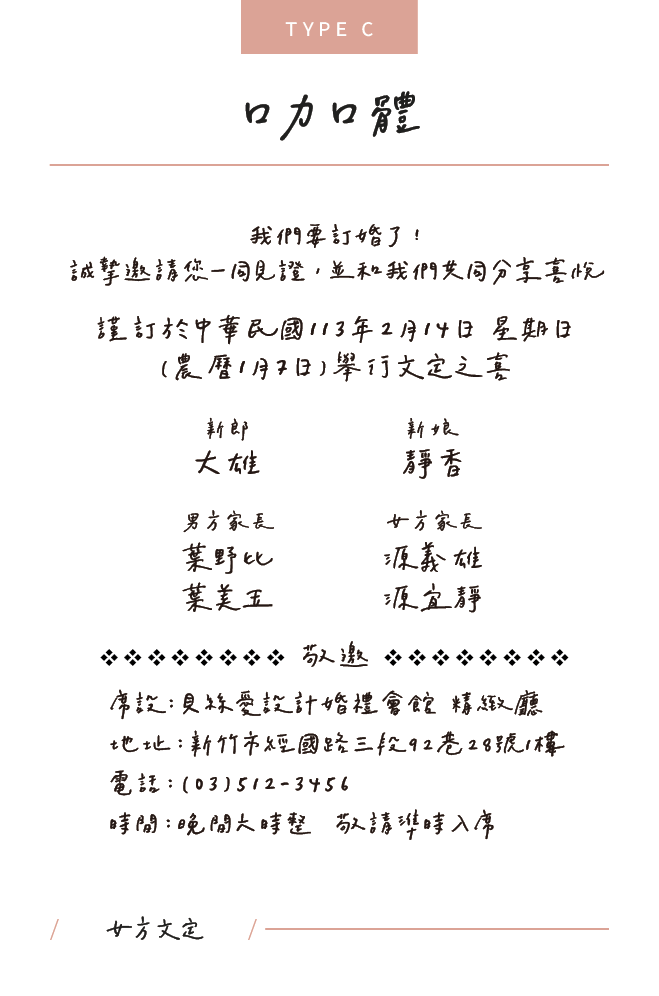 TYPE C
口力口體
我們要訂婚了！
誠摯邀請您一同見證，並和我們共同分享喜悅
謹訂於中華民國113年2月14日 星期日
(農曆1月7日)舉行文定之喜
新郎 新娘
大雄 靜香
男方家長 女方家長
葉野比 源義雄
葉美玉 源宜靜
❖❖❖❖❖❖❖❖ 敬邀 ❖❖❖❖❖❖❖❖
席設：貝絲愛設計婚禮會館 精緻廳
地址：新竹市經國路三段92巷28號1樓
電話：(03)512-3456
時間：晚間六時整 敬請準時入席
/ 女方文定 /